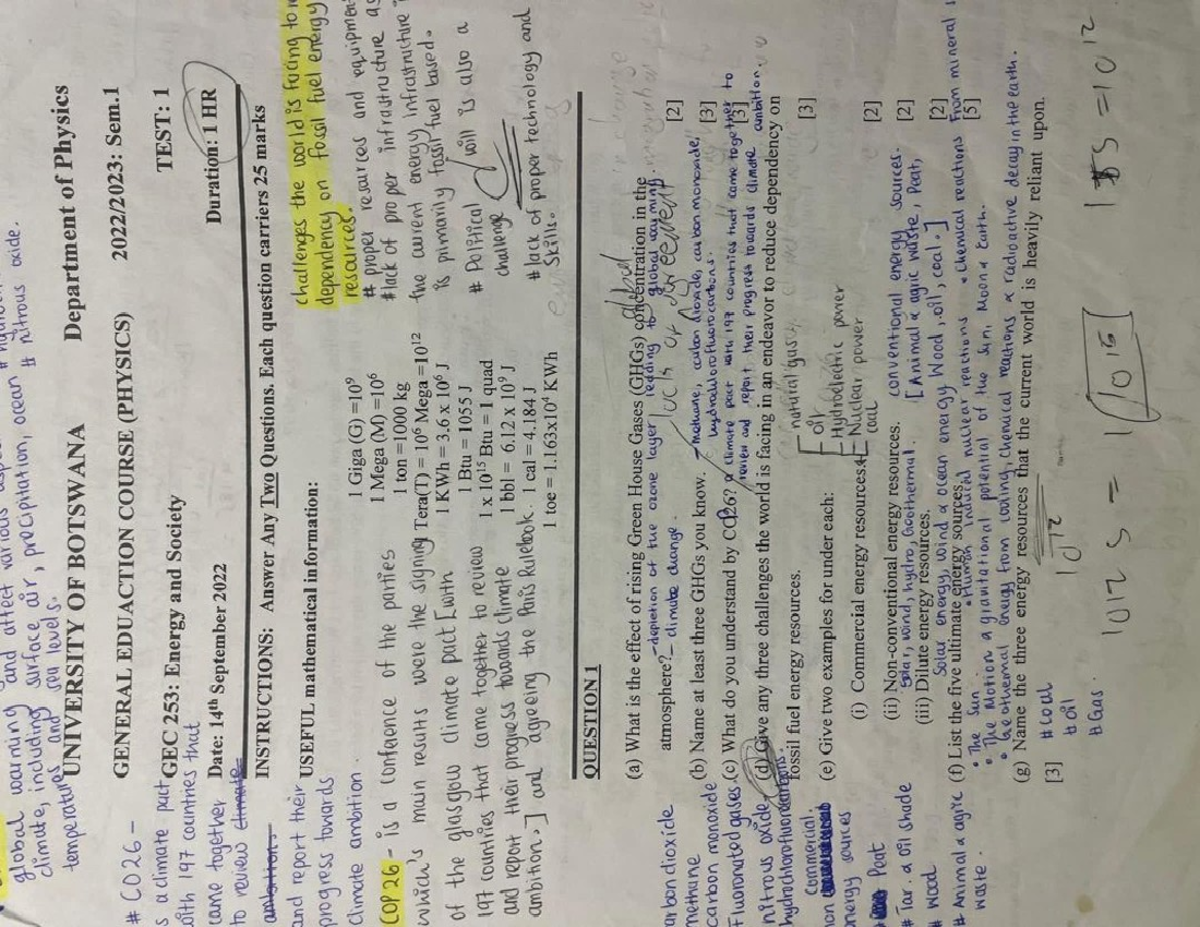 global warming and affect various
climate, including surface air, precipitation, ocean
temperatures and sea levels.
# Nitrous oxide.
UNIVERSITY OF BOTSWANA Department of Physics
GENERAL EDUACTION COURSE (PHYSICS) 2022/2023: Sem.1
GEC 253: Energy and Society TEST: 1
Date: 14th September 2022 Duration: 1 HR
INSTRUCTIONS: Answer Any Two Questions. Each question carriers 25 marks
USEFUL mathematical information:
1 Giga (G) =10⁹
1 Mega (M) =10⁶
1 ton =1000 kg
Tera(T) = 10⁶ Mega =10¹²
1 KWh = 3.6 x 10⁶ J
1 Btu = 1055 J
1 x 10¹⁵ Btu = 1 quad
1 bbl = 6.12 x 10⁹ J
1 cal = 4.184 J
1 toe = 1.163x10⁴ KWh
# CO26 -
is a climate pact
with 197 countries that
came together
to review climate
ambition.
and report their
progress towards
Climate ambition.
COP 26 - is a conference of the parties
which's main results were the signing
of the glasgow climate pact [with
197 countries that came together to review
and report their progress towards climate
ambition.] and agreeing the Paris Rulebook.
challenges the world is facing to
dependency on fossil fuel energy
resources.
# proper resources and equipment
# lack of proper infrastructure as
the current energy infrastructure
is primarily fossil fuel based.
# Political will is also a
challenge
# lack of proper technology and
skills.
QUESTION 1
(a) What is the effect of rising Green House Gases (GHGs) concentration in the
atmosphere? [2]
- depletion of the ozone layer leading to global warming.
- climate change.
lack of agreement
(b) Name at least three GHGs you know. [3]
Methane, carbon dioxide, carbon monoxide,
hydrochlorofluorocarbons.
(c) What do you understand by COP26? [3]
a climate pact with 197 countries that came together to
review and report their progress towards climate ambition.
(d) Give any three challenges the world is facing in an endeavor to reduce dependency on
fossil fuel energy resources. [3]
(e) Give two examples for under each:
natural gas
oil
Hydroelectric power
Nuclear power
coal
(i) Commercial energy resources. [2]
(ii) Non-conventional energy resources. [2]
Solar, wind, hydro, Geothermal.
conventional energy sources.
[Animal & agric waste, Peat,
Wood, oil, coal.]
(iii) Dilute energy resources. [2]
Solar energy, wind & ocean energy
(f) List the five ultimate energy sources. [5]
• The Sun
• Human induced nuclear reactions
• Chemical reactions from mineral
• The Motion & gravitational potential of the Sun, Moon & Earth.
• Geothermal energy from cooling, chemical reactions & radioactive decay in the earth.
(g) Name the three energy resources that the current world is heavily reliant upon.
[3]
# coal
# oil
# Gas.
carbon dioxide
methane
carbon monoxide
Fluoronated gases.
nitrous oxide
hydrochlorofluorocarbons.
commercial
energy sources
# Peat
# Tar & oil shade
# wood
# Animal & agric
waste.
10¹²
10¹⁵
= 10¹²